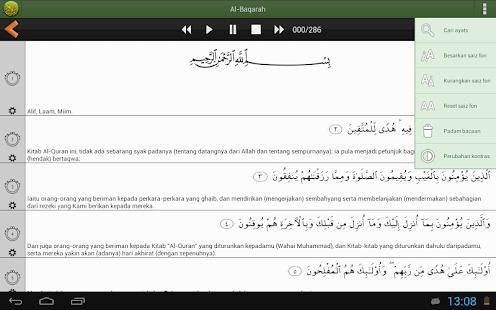 Al-Baqarah
000/286
Cari ayats
Besarkan saiz fon
Kurangkan saiz fon
Reset saiz fon
Padam bacaan
Perubahan kontras
1
Alif, Laam, Miim.
2
فِيهِ ۛ هُدًى لِّلْمُتَّقِينَ ٢
Kitab Al-Quran ini, tidak ada sebarang syak padanya (tentang datangnya dari Allah dan tentang sempurnanya); ia pula menjadi petunjuk bagi
(hendak) bertaqwa;
3
الَّذِينَ يُؤْمِنُونَ بِالْغَيْبِ وَيُقِيمُونَ الصَّلَوٰةَ وَمِمَّا رَزَقْنَٰهُمْ يُنفِقُونَ ٣
Iaitu orang-orang yang beriman kepada perkara-perkara yang ghaib, dan mendirikan (mengerjakan) sembahyang serta membelanjakan (mendermakan) sebahagian
dari rezeki yang Kami berikan kepada mereka.
4
وَالَّذِينَ يُؤْمِنُونَ بِمَآ أُنزِلَ إِلَيْكَ وَمَآ أُنزِلَ مِن قَبْلِكَ وَبِالْءَاخِرَةِ هُمْ يُوقِنُونَ ٤
Dan juga orang-orang yang beriman kepada Kitab "Al-Quran" yang diturunkan kepadamu (Wahai Muhammad), dan Kitab-kitab yang diturunkan dahulu daripadamu,
serta mereka yakin akan (adanya) hari akhirat (dengan sepenuhnya).
5
أُو۟لَٰٓئِكَ عَلَىٰ هُدًى مِّن رَّبِّهِمْ ۖ وَأُو۟لَٰٓئِكَ هُمُ الْمُفْلِحُونَ ٥
13:08